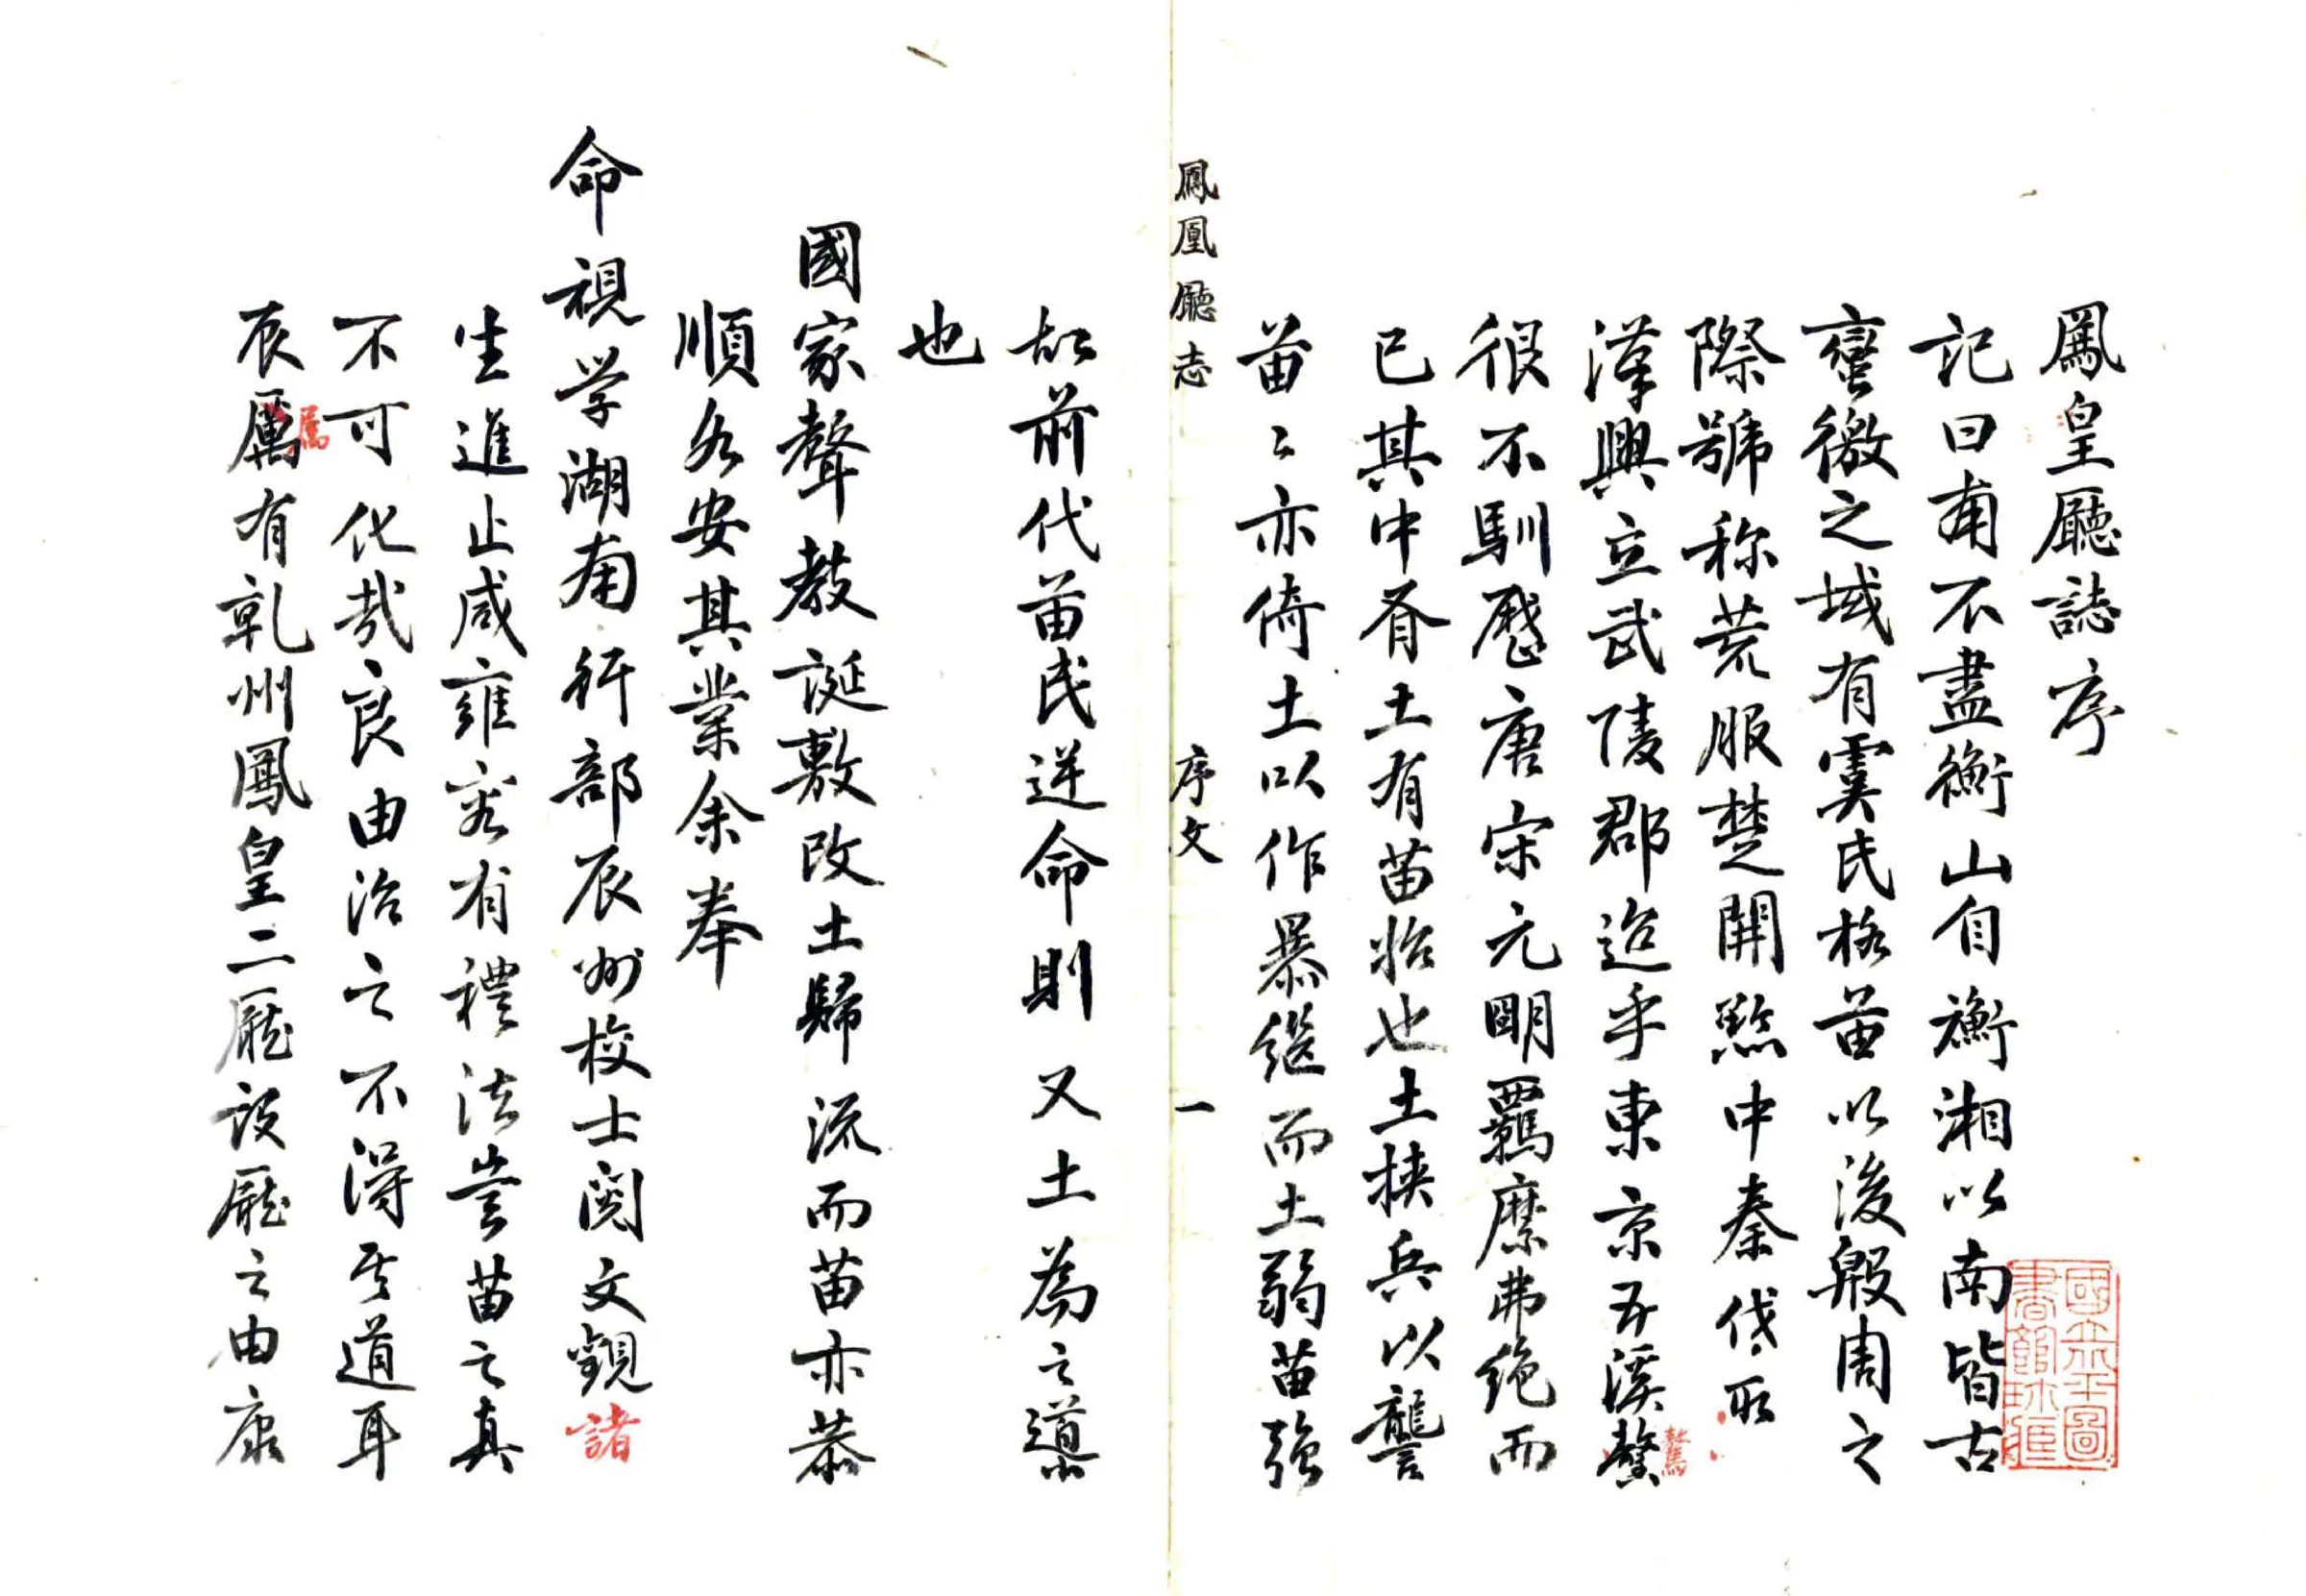 鳳皇廳誌序
記曰南不盡衡山自衡湘以南皆古
蠻徼之域有虞氏格苗以後殷周之
際號称荒服楚開黔中秦伐取
漢興立武陵郡迨乎東京五溪驁
很不馴歷唐宋元明羈縻弗绝而
已其中有土有苗始也土挟兵以讋
苗〻亦倚土以作暴继而土弱苗强
鳳凰廳志 序文 一
故前代苗民逆命則又土為之導
也
國家聲教誕敷改土歸流而苗亦恭
順各安其業余奉
命視学湖南行部辰州校士阅文觀諸
生進止咸雍容有禮法豈苗之真
不可化哉良由治之不得其道耳
辰屬有乾州鳳皇二廳設廳之由康
國立北平圖書館珍藏